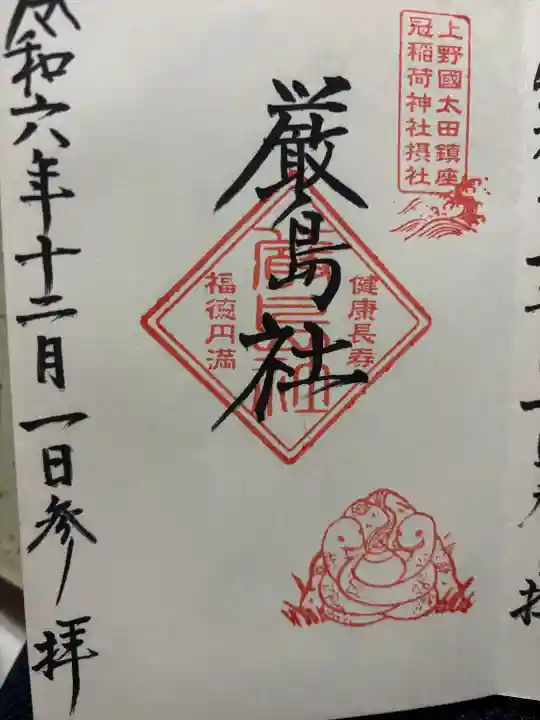 上野國太田鎮座
冠稲荷神社摂社
厳島社
健康長寿
厳島社
福徳円満
令和六年十二月一日参拝